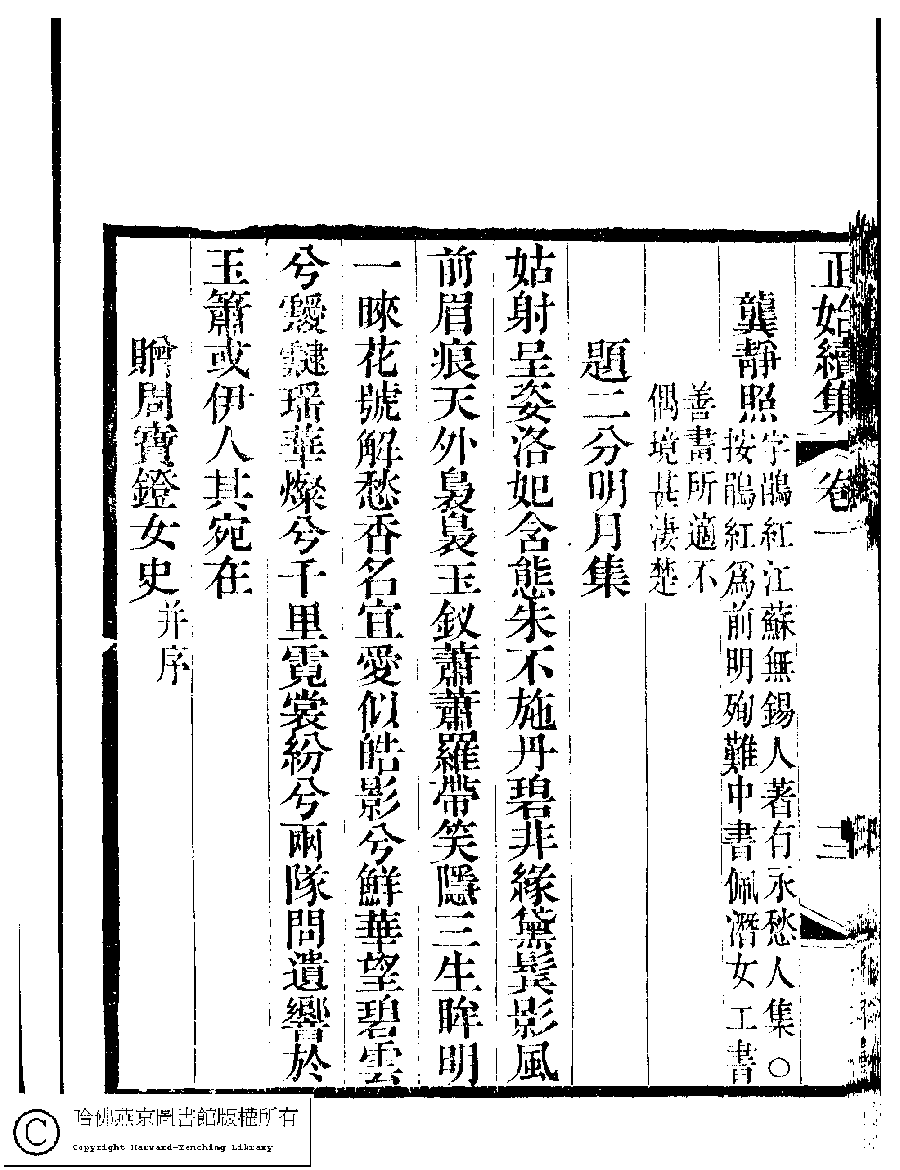 正始續集 卷一 三
龔靜照
字鵑紅江蘇無錫人著有永愁人集○
按鵑紅爲前明殉難中書佩潛女工書
善畫所適不
偶境甚凄楚
題二分明月集
姑射呈姿洛妃含態朱不施丹碧非緣黛鬓影風
前眉痕天外裊裊玉釵蕭蕭羅帶笑隱三生眸明
一睞花號解愁香名宜愛似皓影兮鮮華望碧雲
兮靉靆瑶華燦兮千里霓裳紛兮兩隊問遺響於
玉簫或伊人其宛在
贈周寶鐙女史并序
哈佛燕京圖書館版權所有
Copyright Harvard-Yenching Library